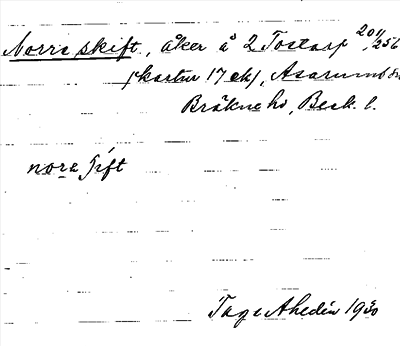 Norra skift., åker å 2 Tostarp 201/256
(kartur 17 ek), Asarums sn
Bräkne hd, Blek. l.
nora ʃift
Tage Ahedin 1930